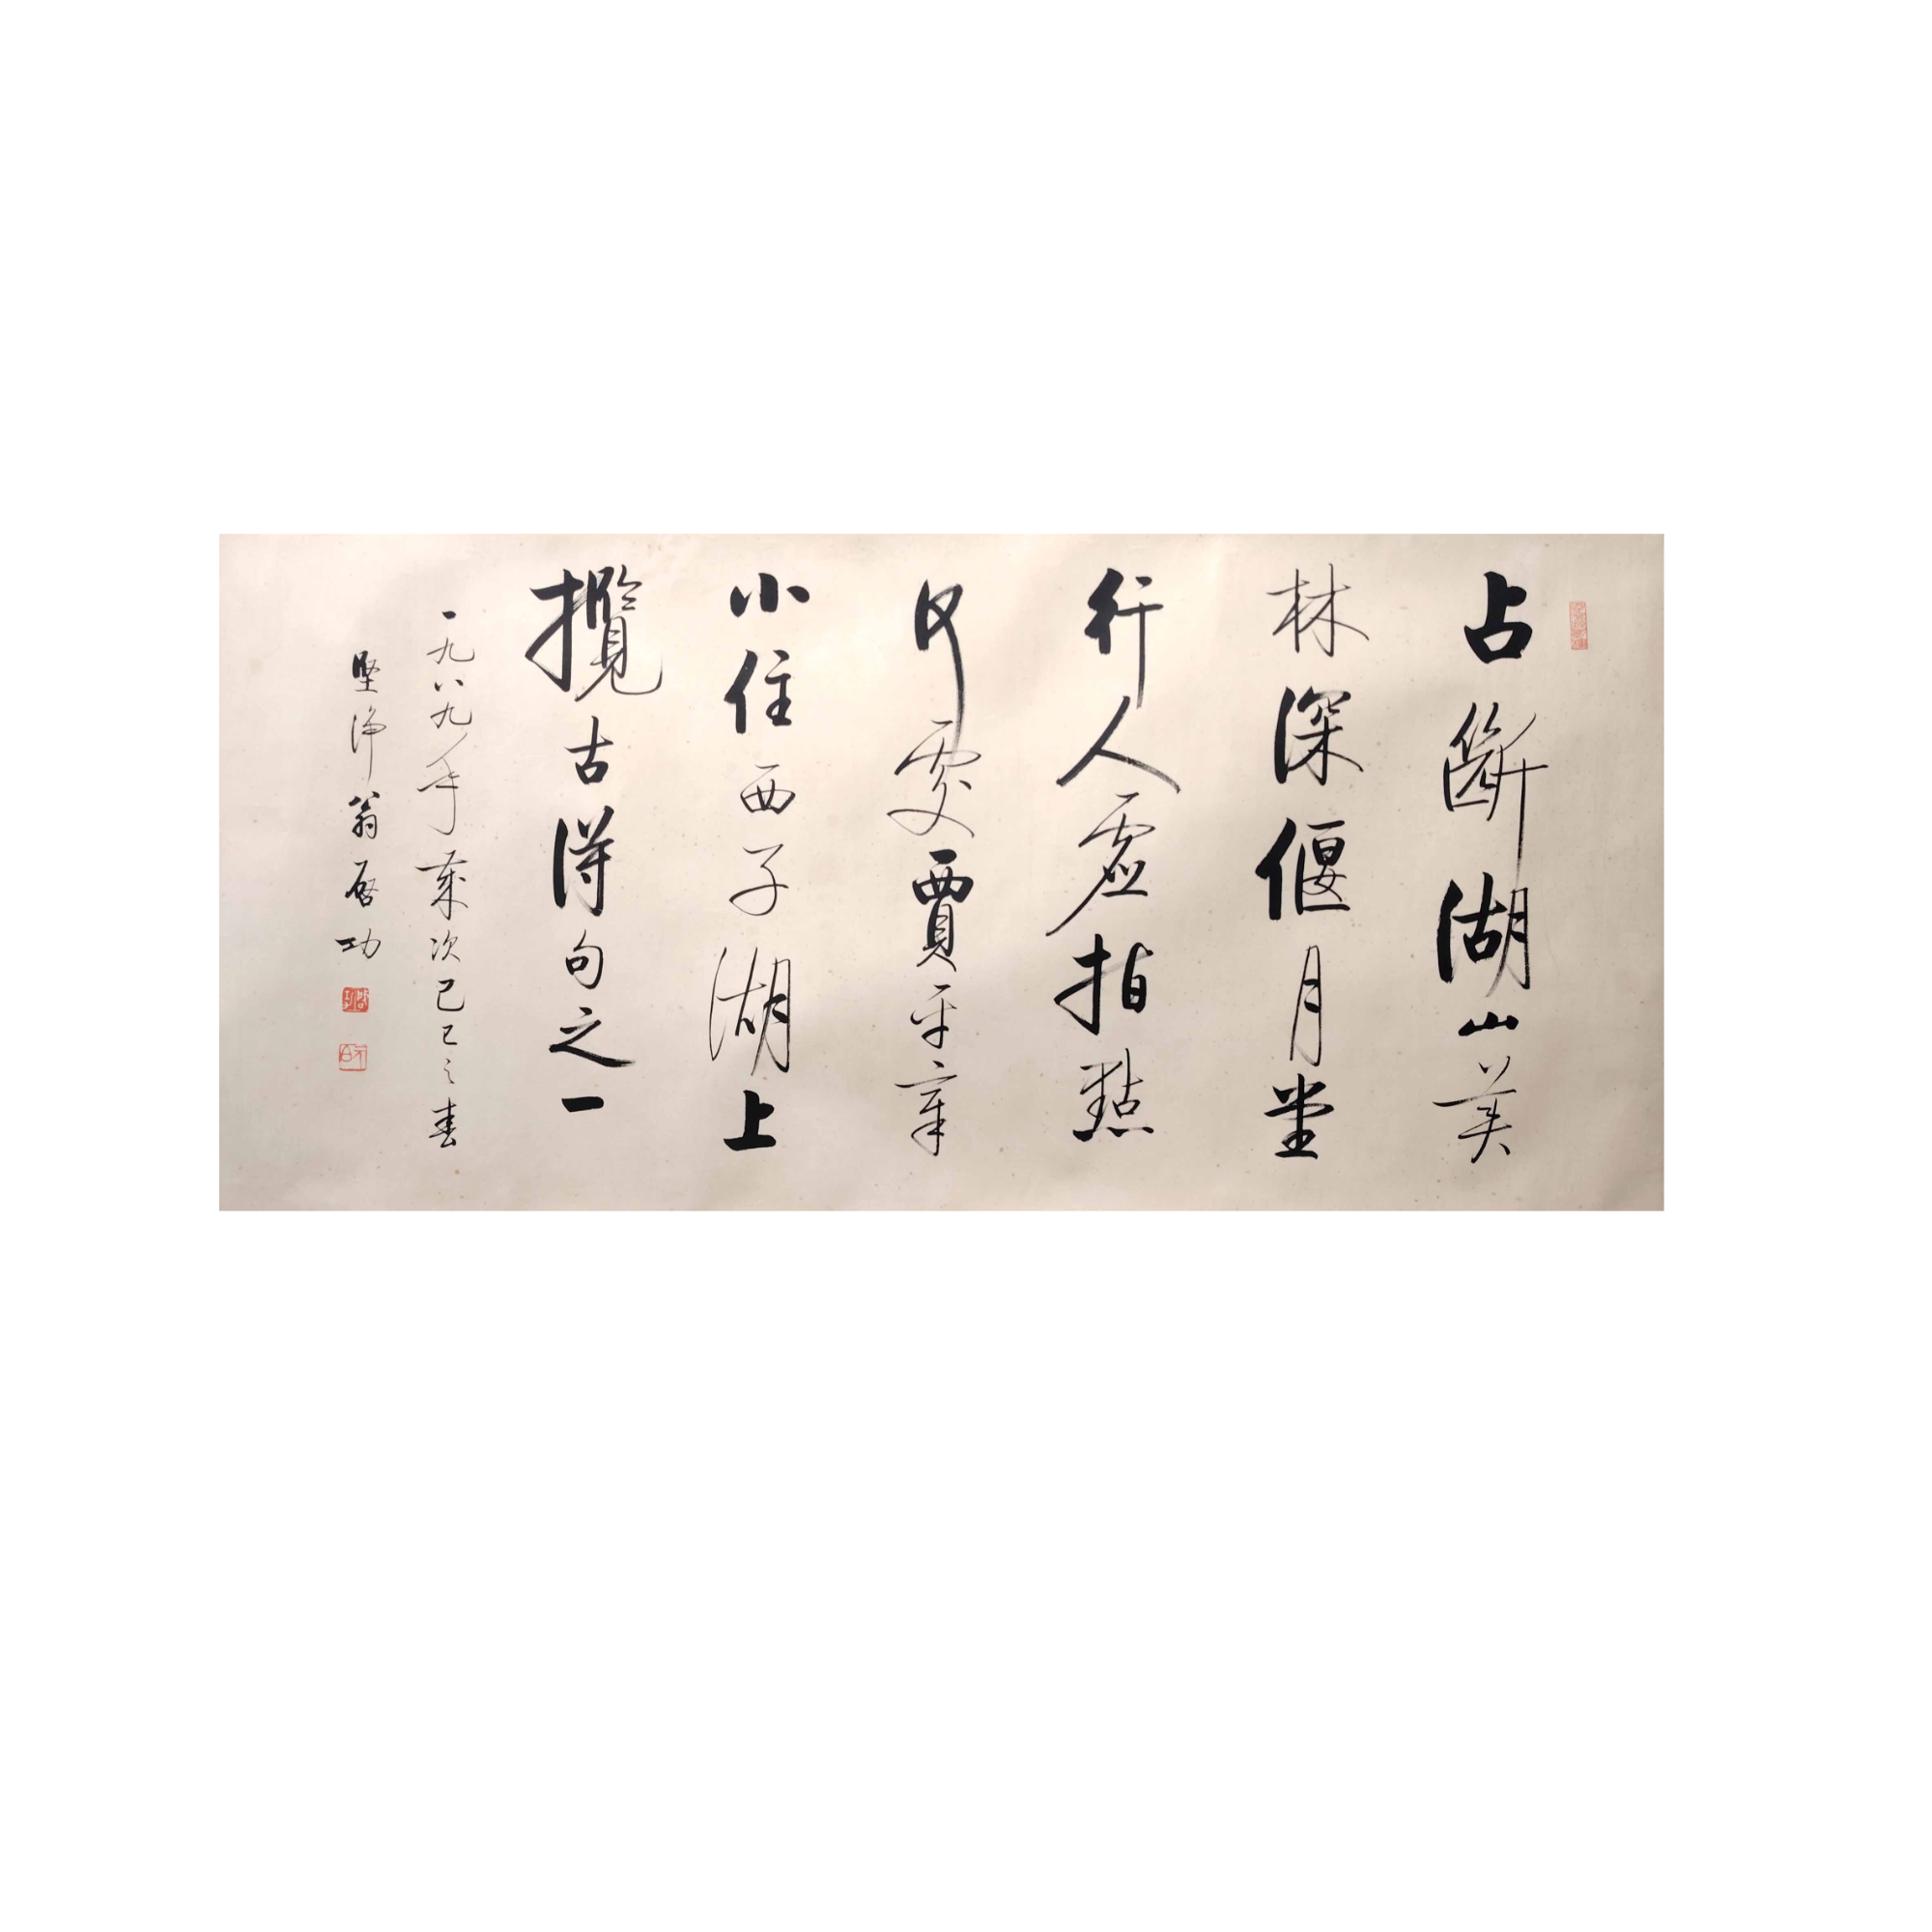 占斷湖山美
林深偃月堂
行人虛指點
何處賈平章
小住西子湖上
攬古得句之一
一九八九年歲次己巳之春
堅淨翁启功